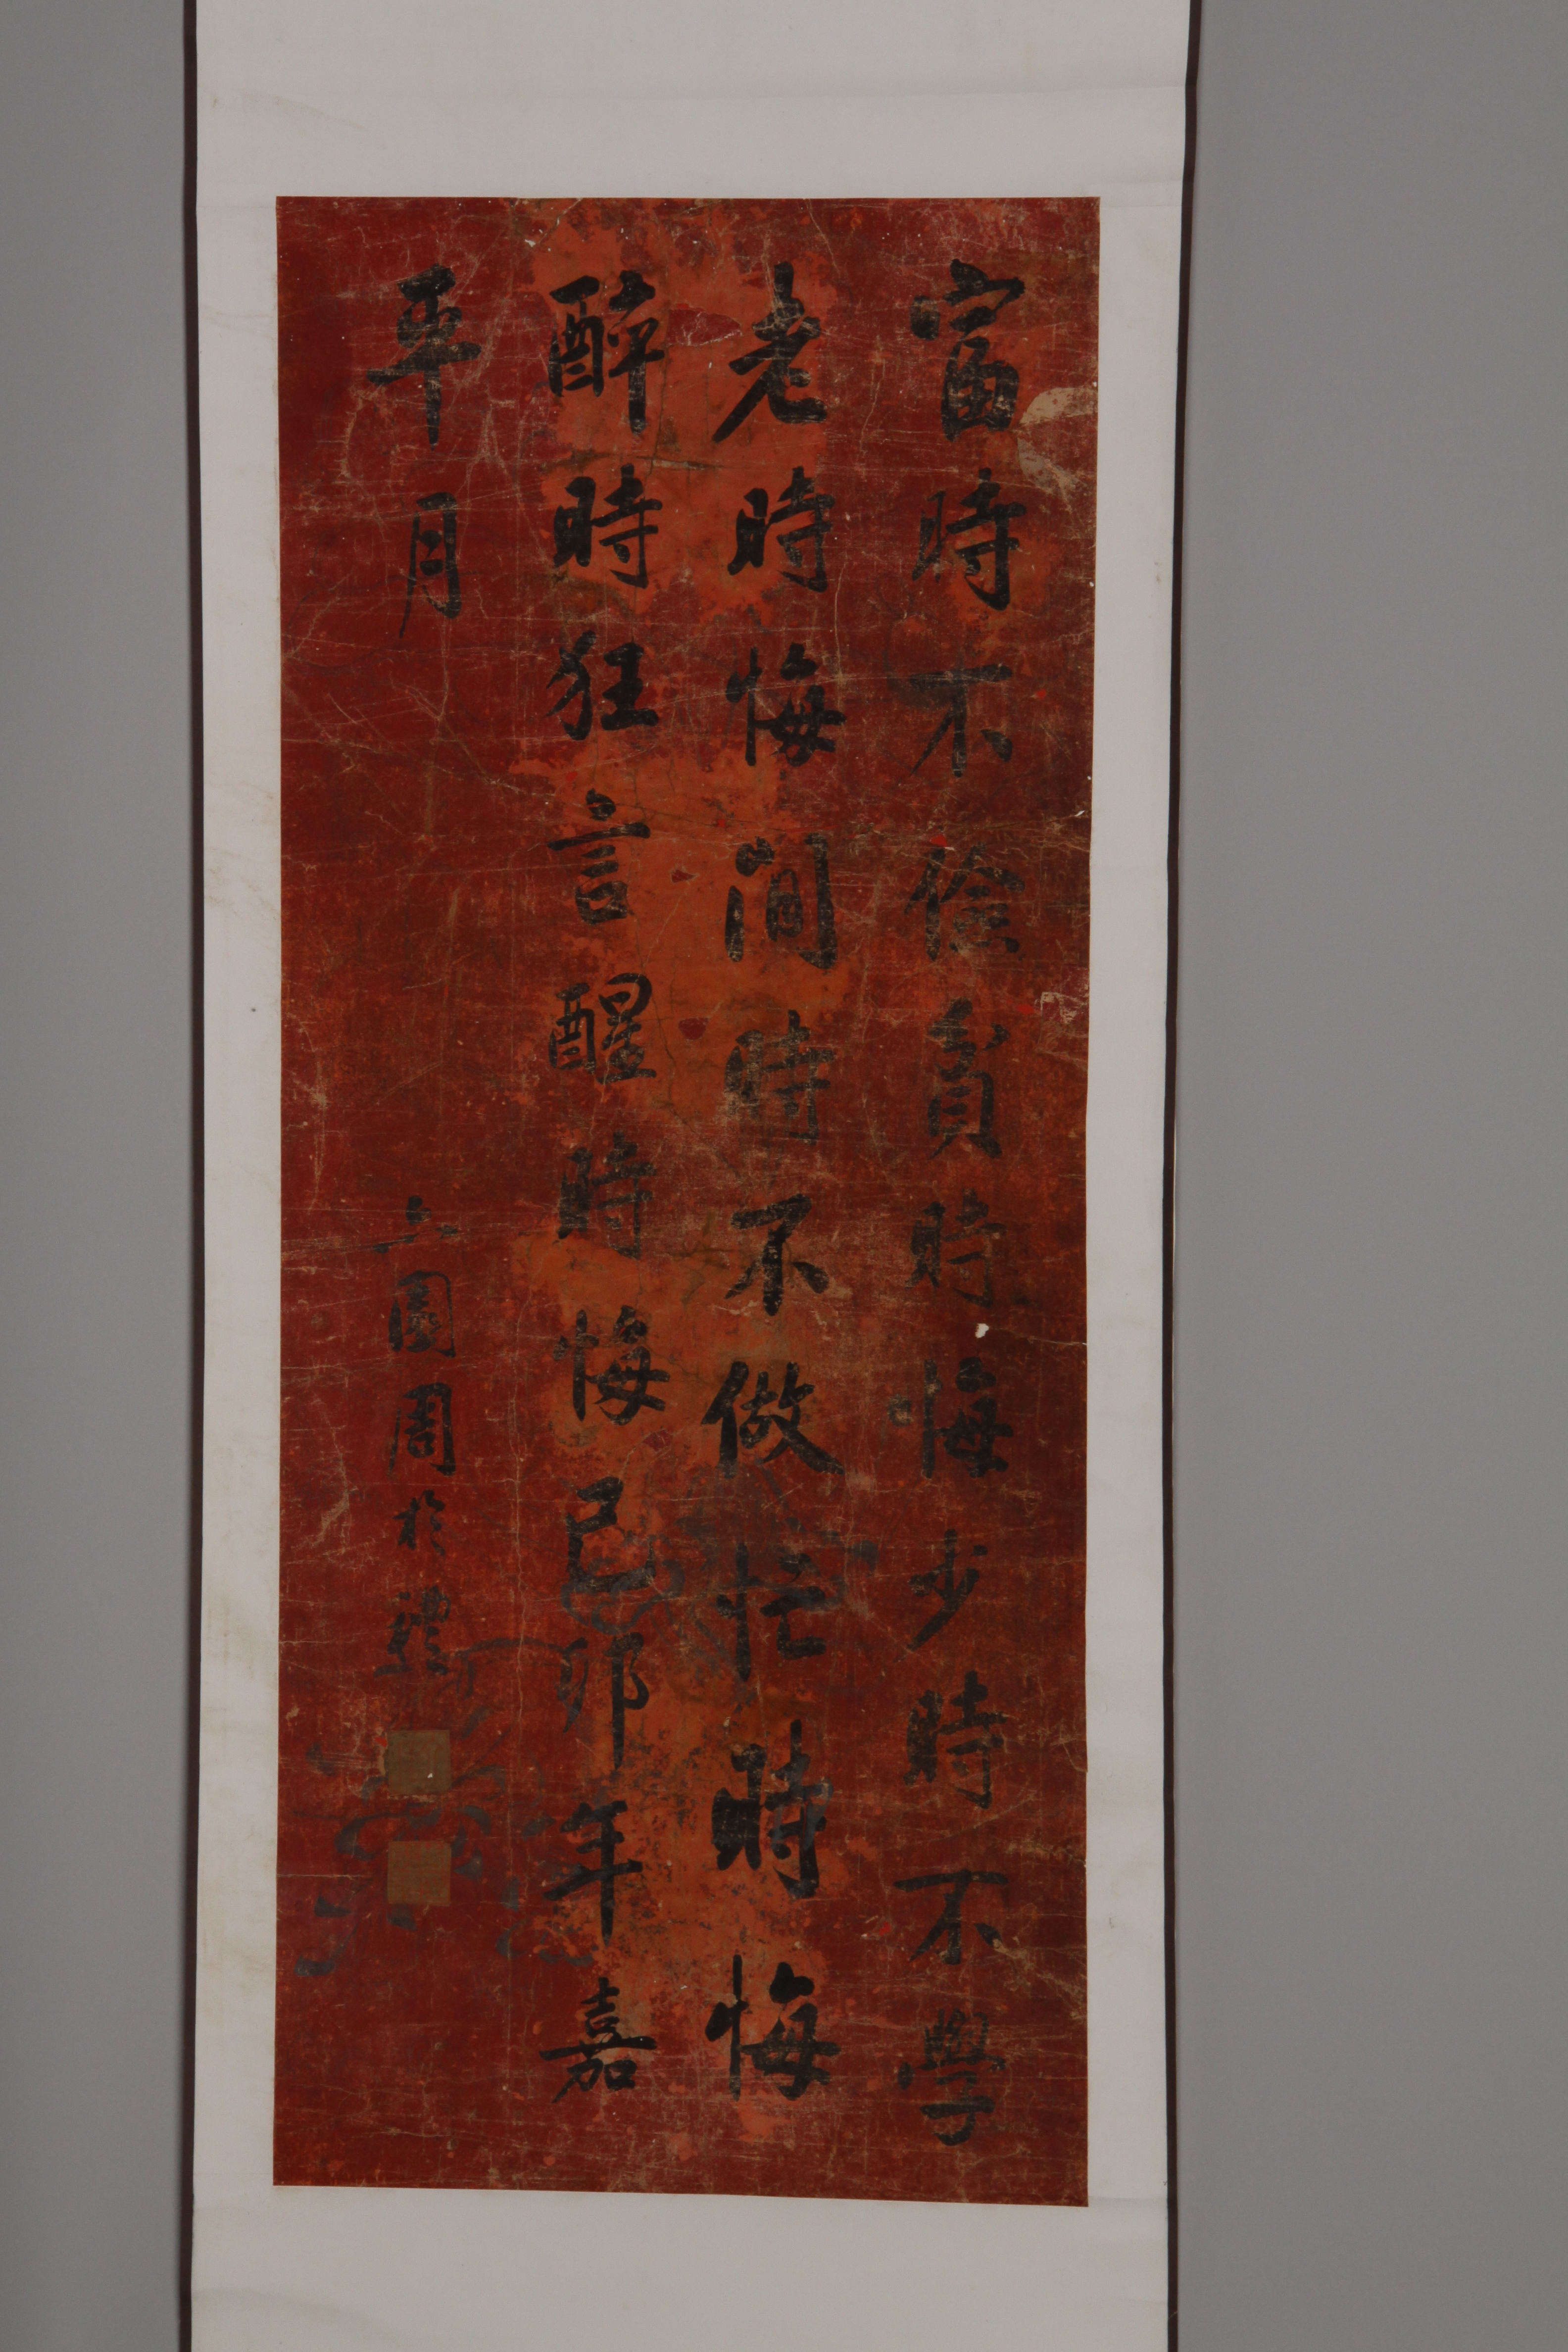 富時不儉貧時悔少時不學
老時悔閒時不做忙時悔
醉時狂言醒時悔己卯年嘉
平月
園周於禮